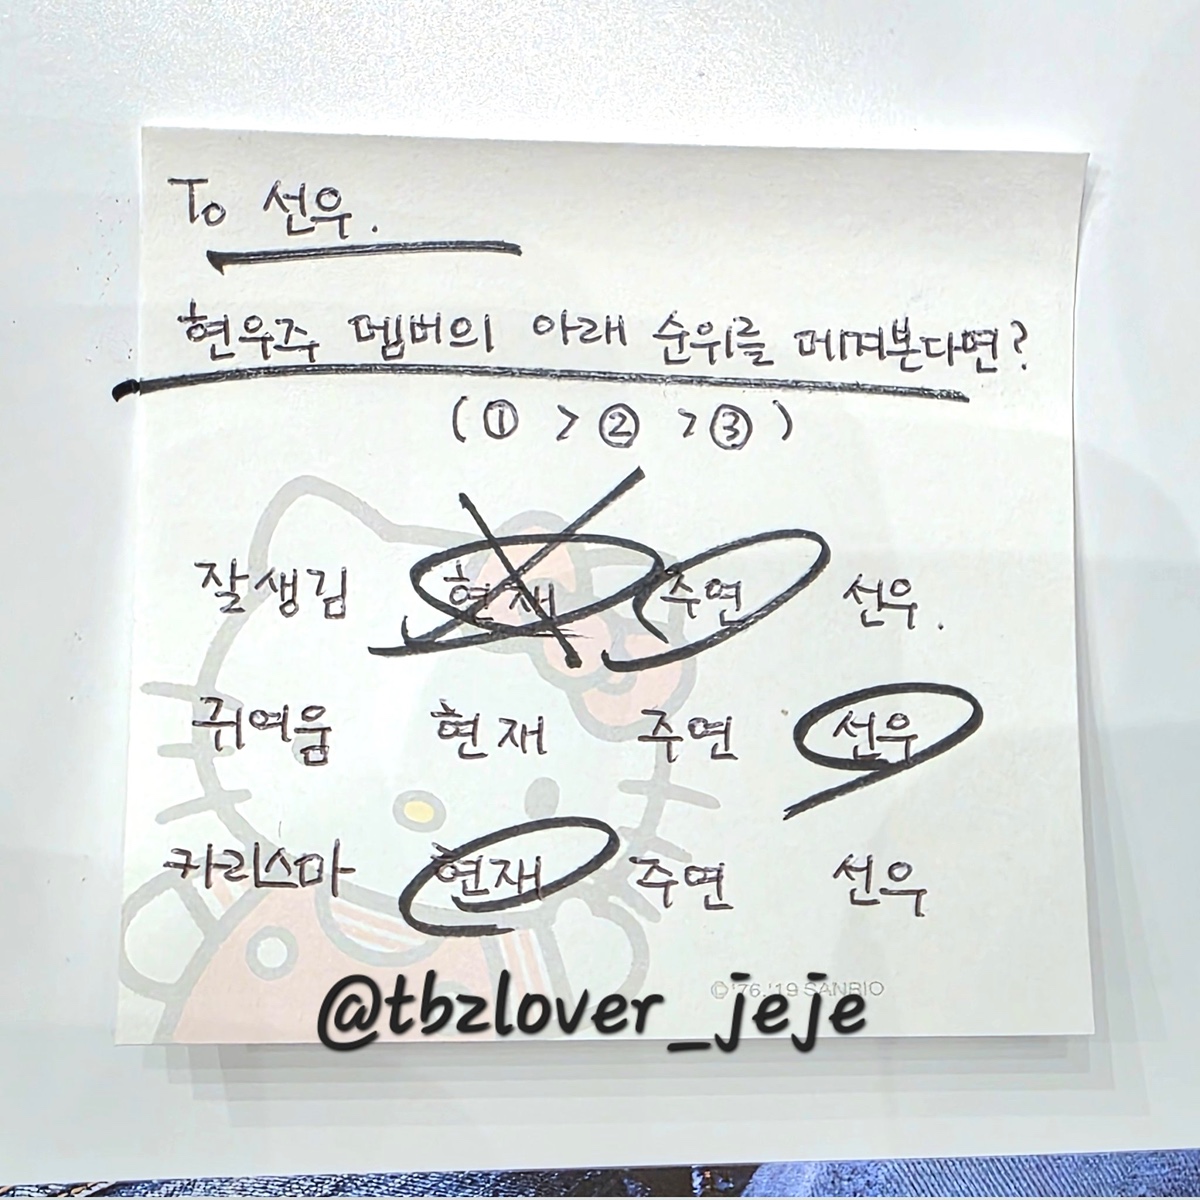 To 선우.
현우주 멤버의 아래 순위를 메겨본다면?
( ① > ② > ③ )
잘생김 현재 주연 선우.
귀여움 현재 주연 선우
카리스마 현재 주연 선우
© '76, '19 SANRIO
@tbzlover_jeje